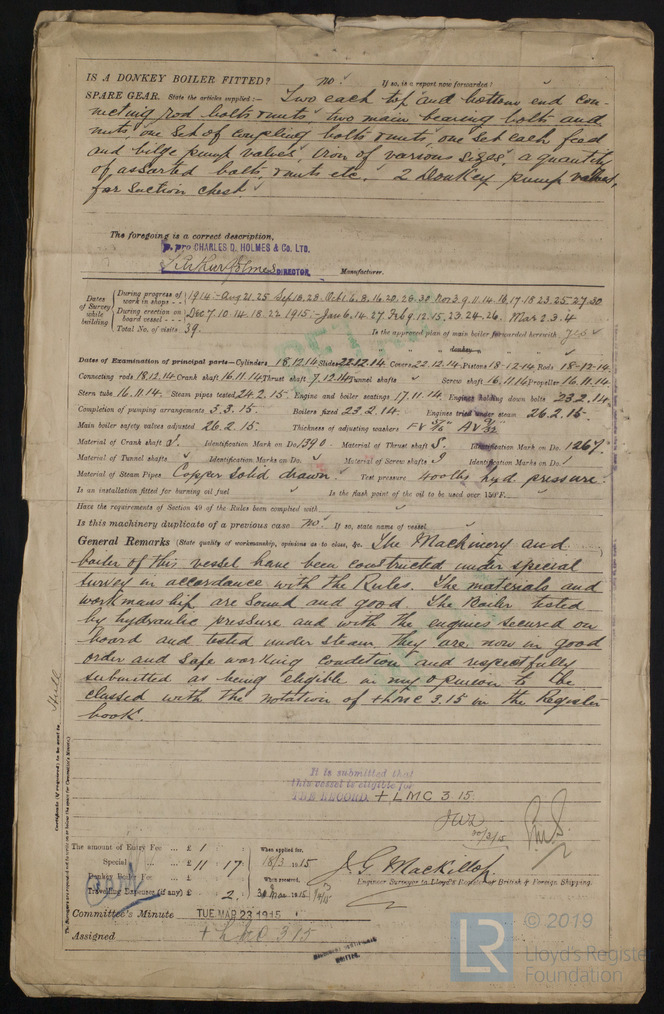 IS A DONKEY BOILER FITTED? no. If so, is a report now forwarded?
SPARE GEAR. State the articles supplied:— Two each top and bottom end con-
necting rod bolts & nuts, two main bearing bolts and
nuts, one set of coupling bolts & nuts, one set each feed
and bilge pump valves, iron of various sizes, a quantity
of assorted bolts, & nuts etc. 2 Donkey pump valves,
for suction chest.
The foregoing is a correct description,
p. pro CHARLES D. HOLMES & Co. LTD.
Arthur Holmes DIRECTOR, Manufacturer.
Dates of Survey while building
During progress of work in shops - - 1914 - Aug 21. 25 Sep 18. 28. Oct 1. 6. 8. 16. 20. 26. 30 Nov 3. 9. 11. 14. 16. 17. 18 23. 25. 27. 30
During erection on board vessel - - - Dec 7. 10. 14. 18. 22 1915 - Jan 6. 14. 27 Feb 9. 12. 15. 23. 24. 26. Mar 2. 3. 4
Total No. of visits 39. Is the approved plan of main boiler forwarded herewith yes
" " " donkey " " "
Dates of Examination of principal parts—Cylinders 18.12.14 Slides 22.12.14 Covers 22.12.14 Pistons 18.12.14 Rods 18.12.14
Connecting rods 18.12.14 Crank shaft 16.11.14 Thrust shaft 7.12.14 Tunnel shafts Screw shaft 16.11.14 Propeller 16.11.14
Stern tube 16.11.14. Steam pipes tested 24.2.15. Engine and boiler seatings 17.11.14 Engines holding down bolts 23.2.14
Completion of pumping arrangements 3.3.15. Boilers fixed 23.2.14. Engines tried under steam 26.2.15.
Main boiler safety valves adjusted 26.2.15. Thickness of adjusting washers
Material of Crank shaft S. Identification Mark on Do. 1390. Material of Thrust shaft S. Identification Mark on Do. 1267.
Material of Tunnel shafts Identification Marks on Do. Material of Screw shafts Identification Marks on Do.
Material of Steam Pipes Copper solid drawn. Test pressure 400 lbs hyd pressure.
Is an installation fitted for burning oil fuel Is the flash point of the oil to be used over 150°F.
Have the requirements of Section 49 of the Rules been complied with
Is this machinery duplicate of a previous case no. If so, state name of vessel
General Remarks (State quality of workmanship, opinions as to class, &c. The Machinery and
boiler of this vessel have been constructed under special
survey in accordance with the Rules. The materials and
workmanship are sound and good. The Boiler tested
by hydraulic pressure and with the engines secured on
board and tested under steam they are now in good
order and safe working condition and respectfully
submitted as being eligible in my opinion to be
classed with the notation of + L M C 3.15 in the Register
book.
It is submitted that
this vessel is eligible for
THE RECORD. + LMC 3.15.
30/3/15
The amount of Entry Fee .. £ 1
Special .. £ 11 17
Donkey Boiler Fee .. £
Travelling Expenses (if any) £ 2.
When applied for, 18/3 1915
When received,
J. G. Mackillop.
Engineer Surveyor to Lloyd's Register of British & Foreign Shipping.
Committee's Minute TUE MAR 23 1915
Assigned + L M C 3.15
MACHINERY CERTIFICATE
WRITTEN.
Certificate (if required) to be sent to Hull
© 2019
LR
Lloyd's Register
Foundation